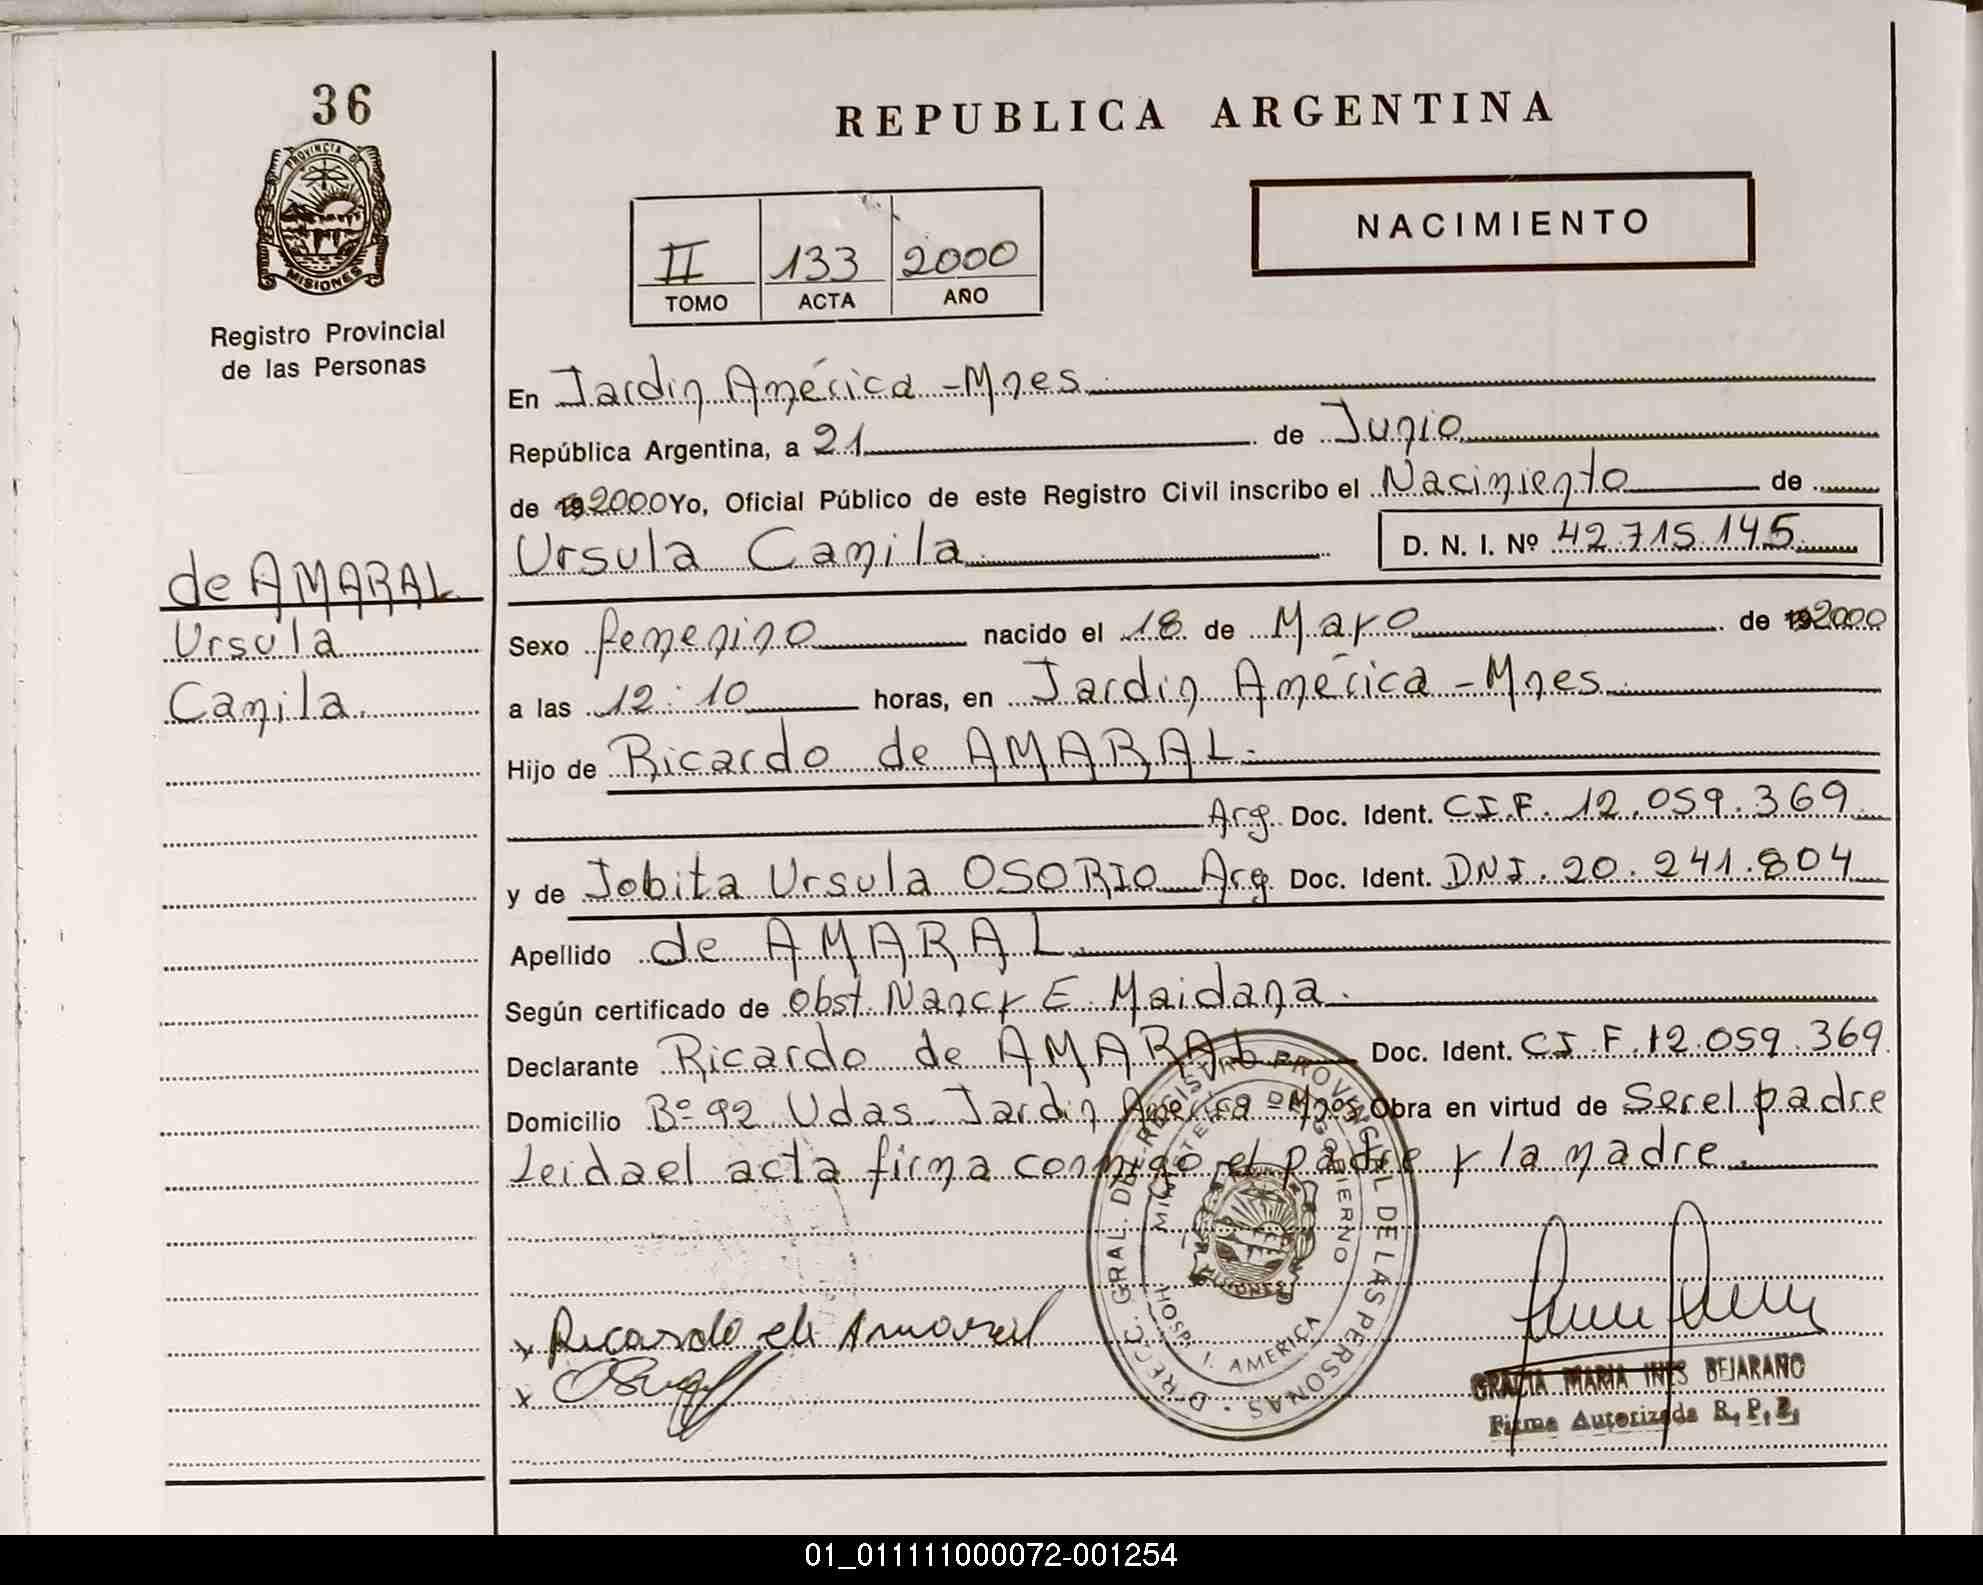 36
REPUBLICA ARGENTINA
PROVINCIA DE
MISIONES
Registro Provincial
de las Personas
NACIMIENTO
II 133 2000
TOMO ACTA AÑO
En Jardín América - Mnes.
República Argentina, a 21 de Junio
de 19 2000 Yo, Oficial Público de este Registro Civil inscribo el Nacimiento de
Ursula Camila D. N. I. Nº 42.715.145
de AMARAL
Ursula
Camila.
Sexo femenino nacido el 18 de Mayo de 19 2000
a las 12:10 horas, en Jardín América - Mnes.
Hijo de Ricardo de AMARAL.
Arg. Doc. Ident. C.I.F. 12.059.369
y de Jobita Ursula OSORIO Arg. Doc. Ident. DNI. 20.241.804
Apellido de AMARAL.
Según certificado de Obst. Nancy E. Maidana.
Declarante Ricardo de AMARAL Doc. Ident. CI.F. 12.059.369
Domicilio Bº 92 Vdas. Jardín América - Mnes Obra en virtud de Ser el padre
Leida el acta firma conmigo el padre y la madre.
DIRECC. GRAL. DEL REGISTRO PROVINCIAL DE LAS PERSONAS
MINISTERIO DE GOBIERNO
MISIONES
HOSP. J. AMERICA
x Ricardo de Amaral
x
GRACIA MARIA INES BEJARANO
Firma Autorizada R. P. P.
01_011111000072-001254